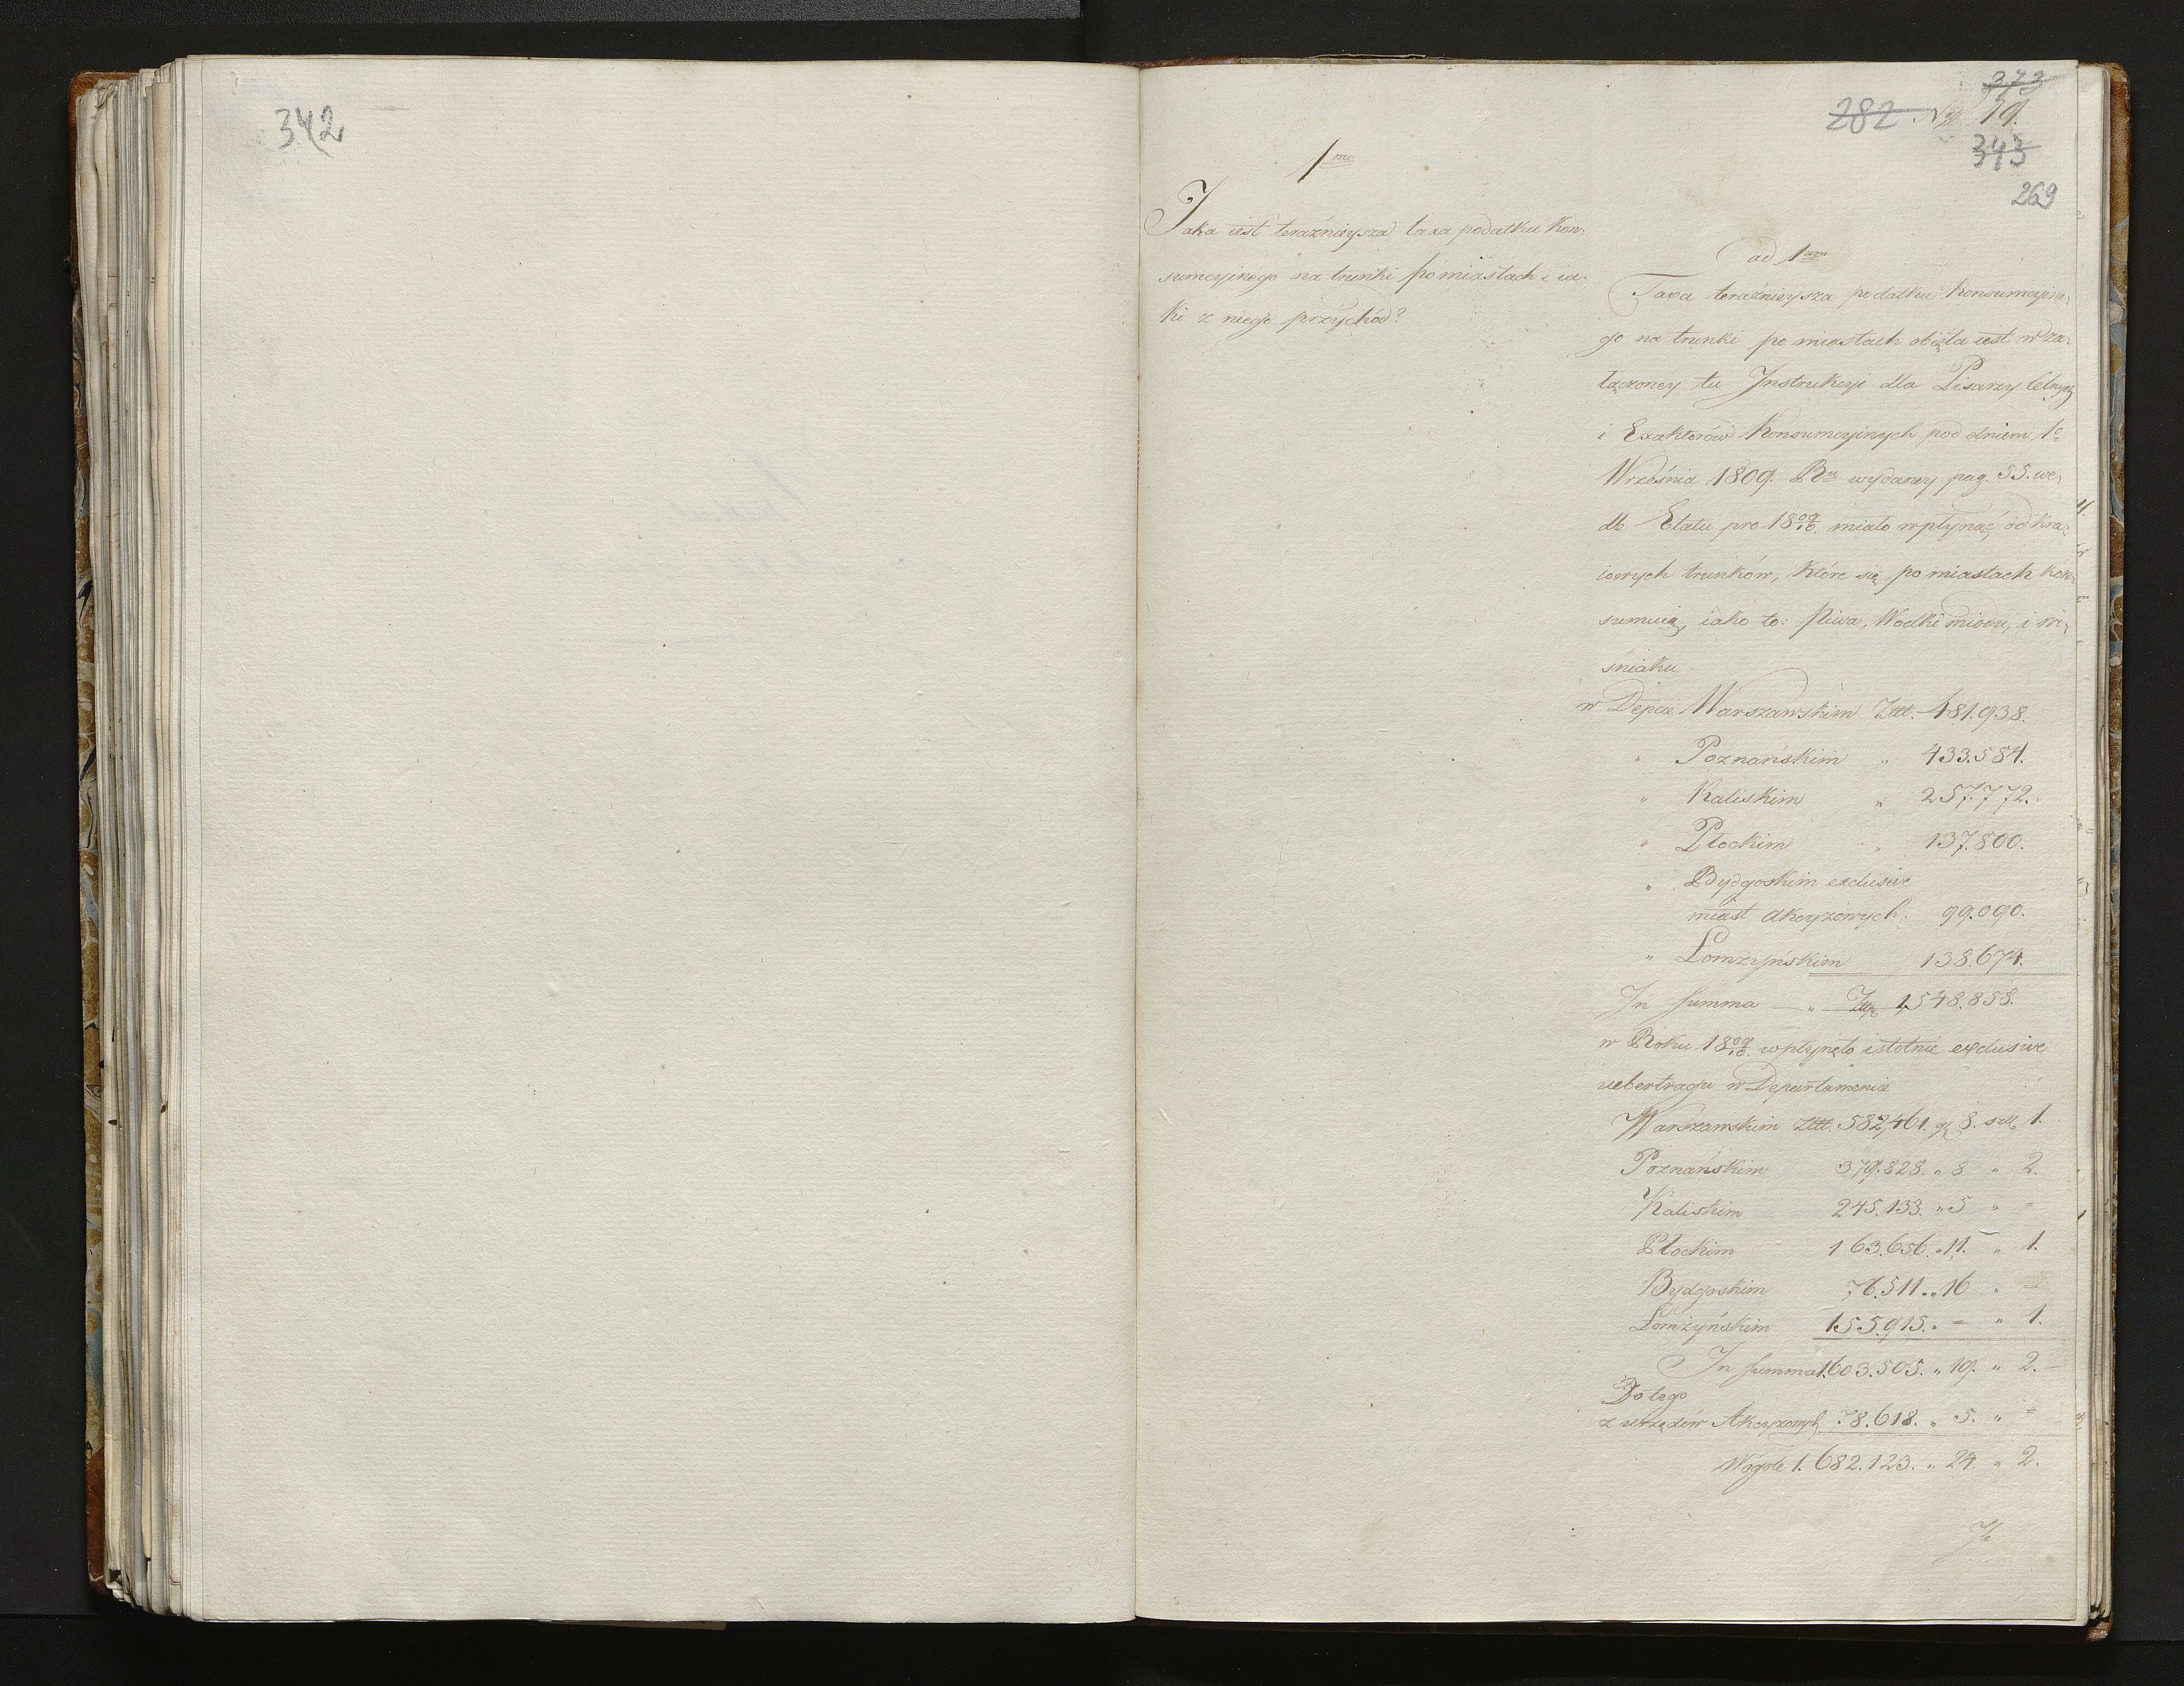 342
373
282 No 19.
343
269
1mo
Jaka iest teraźnieysza taxa podatku kon-
sumcyinego na trunki po miastach i ia-
ki z niego przychód?
ad 1um
Taxa teraźnieysza podatku konsumcyine-
go na trunki po miastach obięta iest w za-
łączoney tu Instrukcyi dla Pisarzy Celnych
i Exaktorów Konsumcyinych pod dniem 1o
Września 1809. Ru wydaney pag. 55. we-
dle Etatu pro 1809/10. miało wpłynąć od kra-
iowych trunków, które się po miastach kon-
sumuią, iako to: Piwa, Wodki miodu, i wi-
śniaku.
w Depcie Warszawskim Złłl. 481.938.
" Poznańskim " 433.584.
" Kaliskim " 257.772.
" Płockim " 137.800.
" Bydgoskim exclusive
miast akcyzowych. 99.090.
" Łomżyńskim 138.674.
In summa — " Złp 1,548.858.
w Roku 1809/10. wpłynęło istotnie exclusive
uebertragu w Departamencie
Warszawskim Złłl. 582,461. gr 8. szl. 1.
Poznańskim 379.828. " 8 " 2.
Kaliskim 245.133. " 5 " =
Płockim 163.656. " 11. " 1.
Bydgoskim 76.511. " 16 " —
Łomżyńskim 155.915. " — " 1.
In summa 1.603.505. " 19. " 2. —
Do tego
z urzędów Akcyzowych 78.618. " 5. " =
Wogole 1.682.123. " 24. " 2.